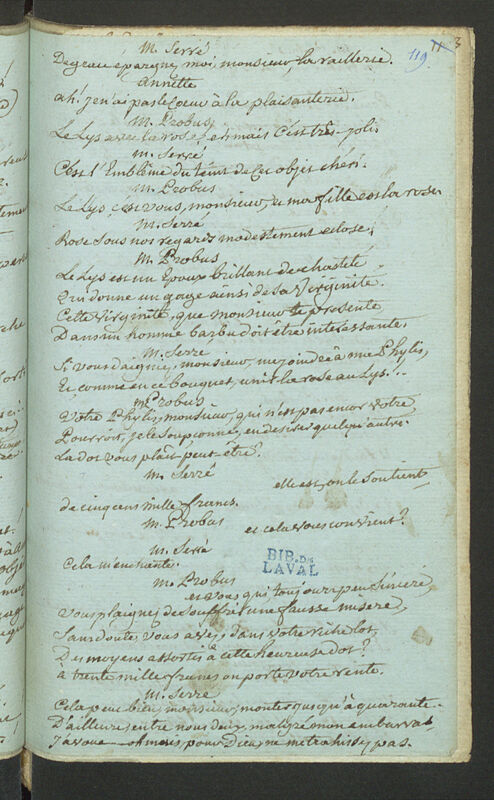 119
m. Serré
De grace épargnez moi, monsieur, la raillerie.
annette
ah! je n'ai pas le coeur à la plaisanterie.
m. Probus
Le Lys avec la rose, eh mais c'est très-joli.
m. Serré
C'est l'Emblême du teint de cet objet chéri.
m. Probus
Le Lys c'est vous, monsieur, & ma fille est la rose
m. Serré
Rose sous nos regards modestement eclose!
m. Probus
Le Lys est un Epoux brillant de chasteté
qui donne un gage ainsi de sa Virginité.
Cette Virginité, que monsieur te presente
Dans un homme barbu doit être intéressante.
m. Serré
Si vous daignez, monsieur, me joindre à ma Phylis,
Et comme en ce bouquet, unir la rose au Lys...
m. Probus
Votre Phylis, monsieur, qui n'est pas encor votre
Pourroit, je le soupçonne, en desirer quelqu'autre.
La dot vous plait peut-être?
m. Serré
elle est, on le soutient
de cinq cens mille francs.
m. Probus
et cela vous convient?
m. Serré
Cela m'enchante.
m. Probus
et vous qui toujours peu sincere,
vous plaignez de souffrir une fausse misere,
Sans doute vous avez, dans votre riche lot,
Des moyens assortis à cette heureuse dot?
à trente mille francs on porte votre rente.
m. Serré
Cela peu bien, monsieur, monter jusqu'à quarante.
D'ailleurs, entre nous deux, malgré mon embarras
J'avoue pour Dieu, ne me trahissez pas.
BIB. DE
LAVAL